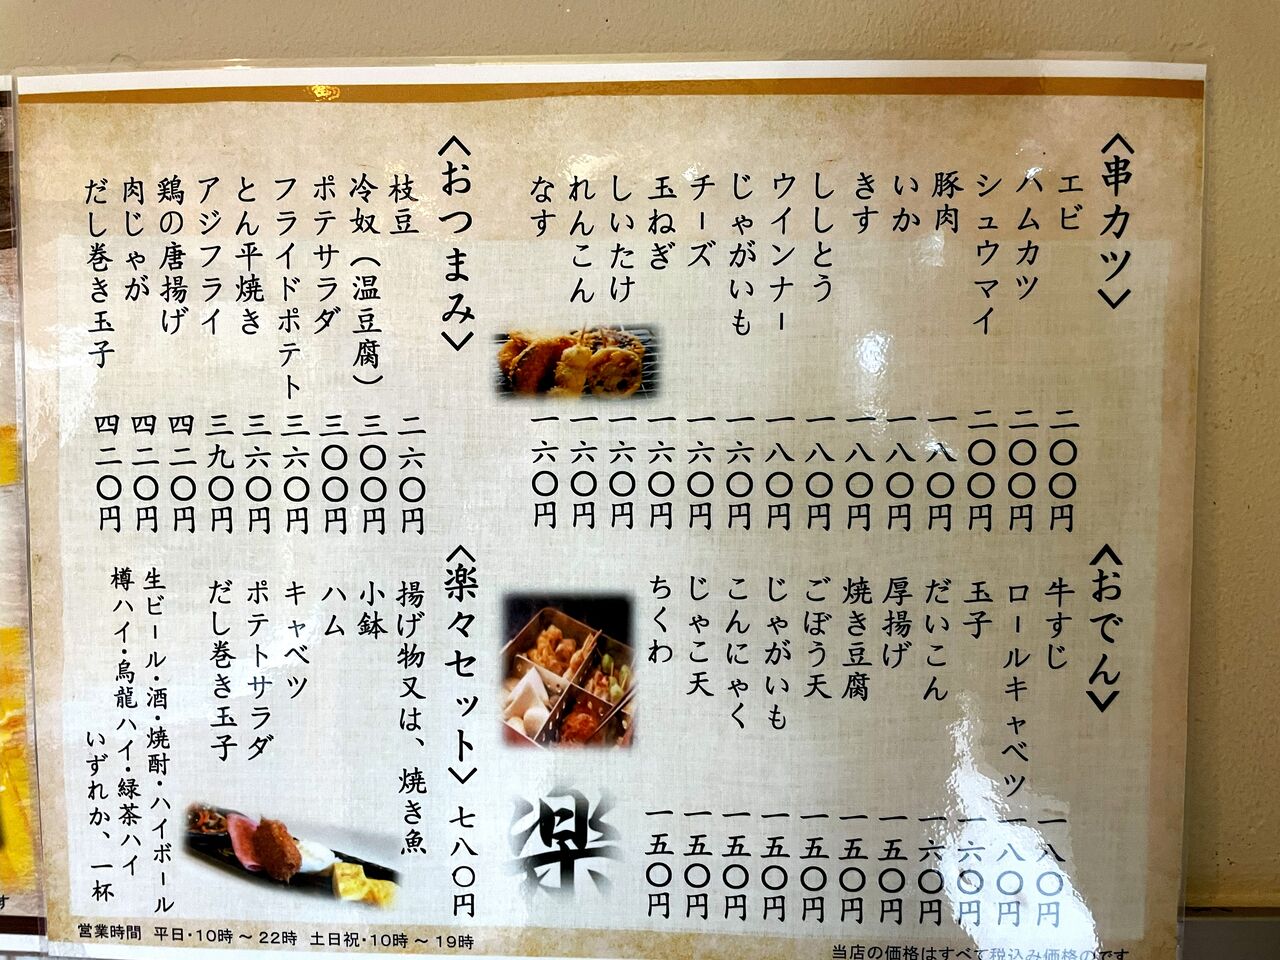 〈串カツ〉
エビ 二〇〇円
ハムカツ 二〇〇円
シュウマイ 二〇〇円
豚肉 一八〇円
いか 一八〇円
きす 一八〇円
ししとう 一八〇円
ウインナー 一八〇円
じゃがいも 一六〇円
チーズ 一六〇円
玉ねぎ 一六〇円
しいたけ 一六〇円
れんこん 一六〇円
なす 一六〇円
〈おつまみ〉
枝豆 二六〇円
冷奴(温豆腐) 三〇〇円
ポテサラダ 三〇〇円
フライドポテト 三六〇円
とん平焼き 三六〇円
アジフライ 三九〇円
鶏の唐揚げ 四二〇円
肉じゃが 四二〇円
だし巻き玉子 四二〇円
〈おでん〉
牛すじ 一八〇円
ロールキャベツ 一八〇円
玉子 一六〇円
だいこん 一六〇円
厚揚げ 一五〇円
焼き豆腐 一五〇円
ごぼう天 一五〇円
じゃがいも 一五〇円
こんにゃく 一五〇円
じゃこ天 一五〇円
ちくわ 一五〇円
楽
〈楽々セット〉 七八〇円
揚げ物又は、焼き魚
小鉢
ハム
キャベツ
ポテトサラダ
だし巻き玉子
生ビール・酒・焼酎・ハイボール
樽ハイ・烏龍ハイ・緑茶ハイ
いずれか、一杯
営業時間 平日・10時～22時 土日祝・10時～19時
当店の価格はすべて税込み価格のです
す